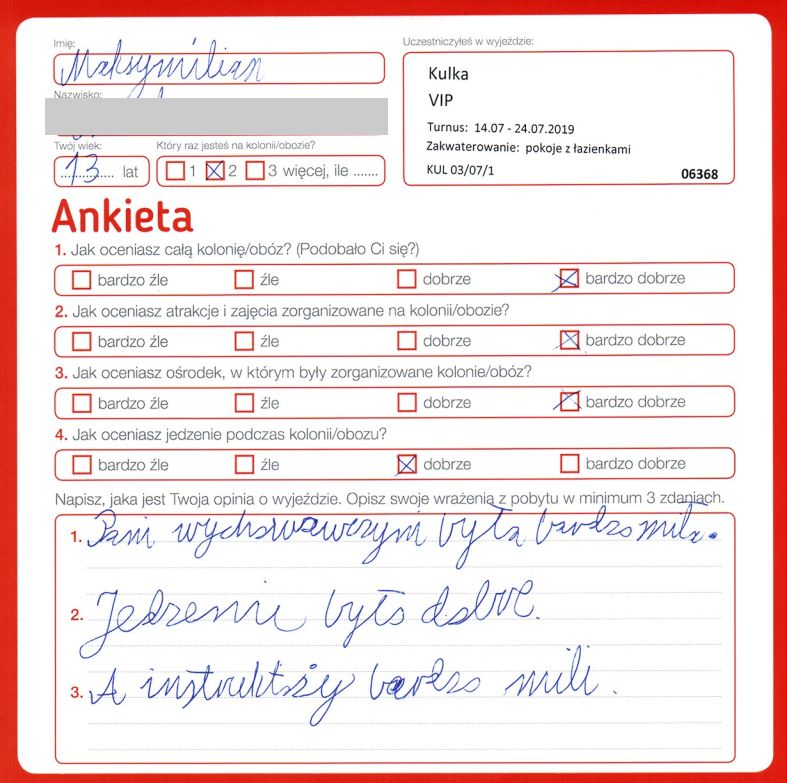 Imię:
Maksymilian
Uczestniczyłeś w wyjeździe:
Kulka
VIP
Turnus: 14.07 - 24.07.2019
Zakwaterowanie: pokoje z łazienkami
KUL 03/07/1
06368
Nazwisko:
Twój wiek:
13 lat
Który raz jesteś na kolonii/obozie?
1 2 3 więcej, ile .......
Ankieta
1. Jak oceniasz całą kolonię/obóz? (Podobało Ci się?)
bardzo źle źle dobrze bardzo dobrze
2. Jak oceniasz atrakcje i zajęcia zorganizowane na kolonii/obozie?
bardzo źle źle dobrze bardzo dobrze
3. Jak oceniasz ośrodek, w którym były zorganizowane kolonie/obóz?
bardzo źle źle dobrze bardzo dobrze
4. Jak oceniasz jedzenie podczas kolonii/obozu?
bardzo źle źle dobrze bardzo dobrze
Napisz, jaka jest Twoja opinia o wyjeździe. Opisz swoje wrażenia z pobytu w minimum 3 zdaniach.
1. Pani wychowawczyni była bardzo miła.
2. Jedzenie było dobre.
3. A instruktży bardzo mili.